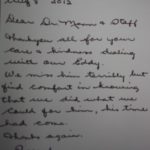 2013
Dear Dr Mann & Staff
Thankyou all for your
care & kindness dealing
with our Eddy.
We miss him terribly but
find comfort in knowing
that we did what we
could for him, his time
had come.
Thanks again.